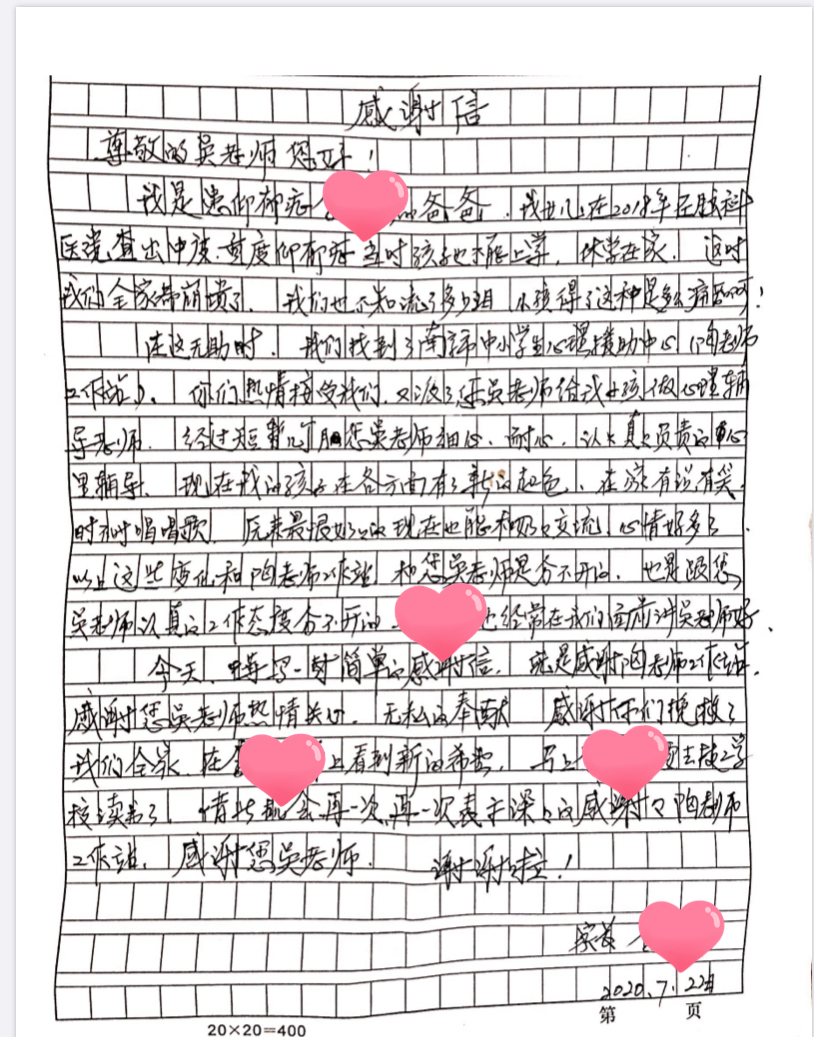 感谢信
尊敬的吴老师您好！
我是患仰郁症爸爸，我女儿在2018年在脑科
医院查出中度.重度仰郁症当时孩子也不能上学，休学在家．这时
我们全家都崩溃了．我们也不知流了多少泪 不懂得了这种是多么痛苦啊！
在这无助时．我们找到了南京市中小学生心理援助中心（陶老师
工作站）．你们热情接受我们．又派了您吴老师给我女孩做心理辅
导老师．经过短暂几个月您吴老师细心．耐心．认认真真负责的心
里辅导．现在我的孩子在各方面有了新的起色．在家有说有笑
时不时唱唱歌．原来最恨奶奶现在也能和奶奶交流．心情好多了．
以上这些变化和陶老师工作站 和您吴老师是分不开的．也是跟您
吴老师认真的工作态度分不开的也经常在我们面前讲吴老师好．
今天．我写一封简单的感谢信．就是感谢陶老师工作站．
感谢您吴老师热情关切．无私的奉献 感谢你们挽救了
我们全家．在上看到新的希望．马上要去校学
校读书了．借此机会再一次再一次表示深深的感谢 陶老师
工作站．感谢您吴老师． 谢谢啦！
家长
2020.7.22日
第 页
20×20=400